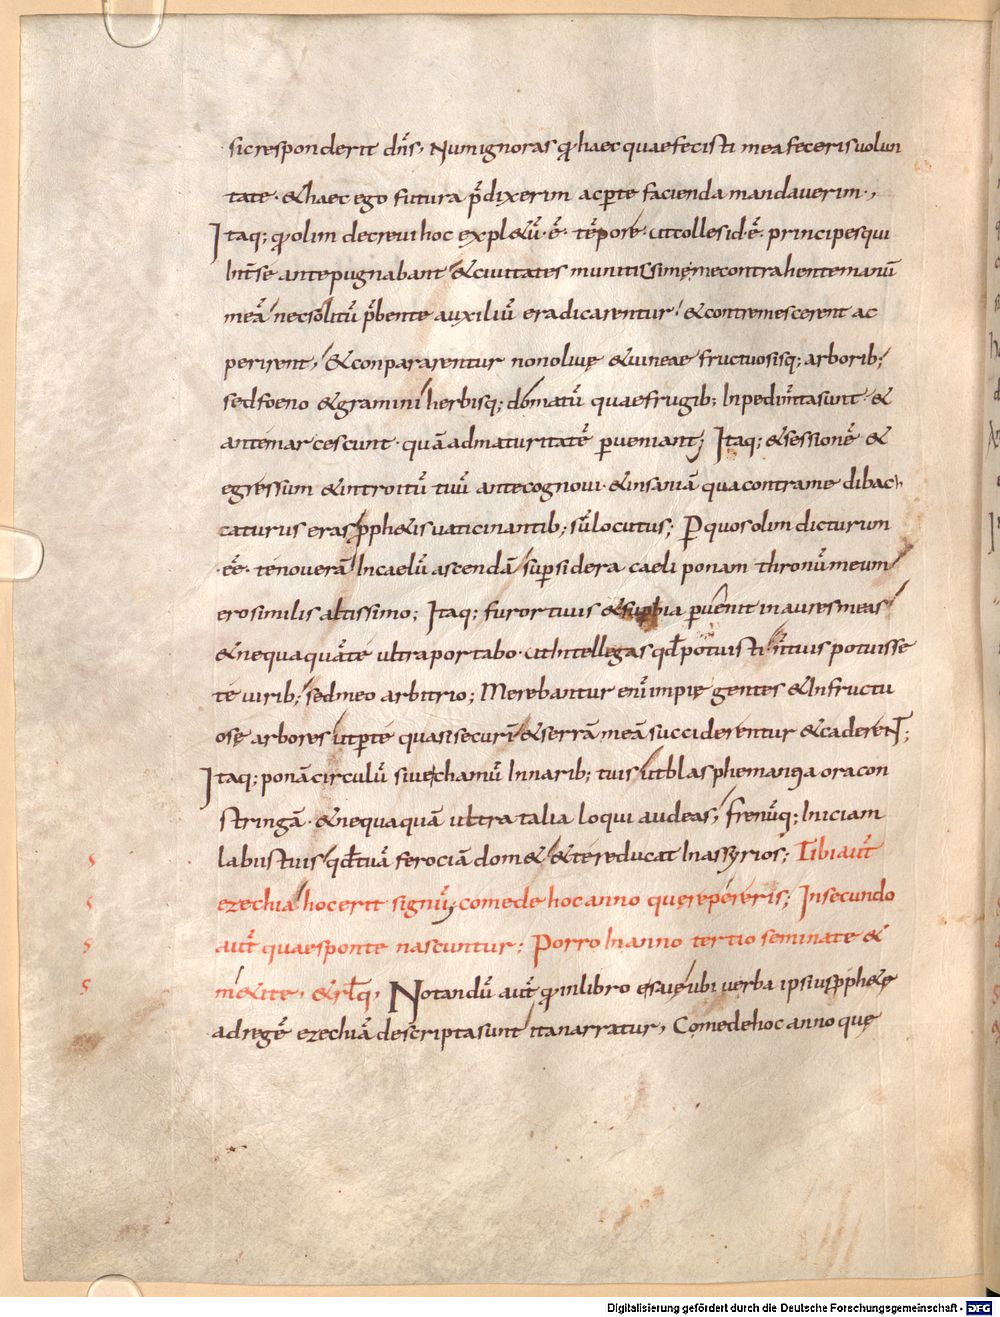 sic responderit dn̄s, Num ignoras qđ haec quae fecisti mea feceris volun
tate. & haec ego futura p̄dixerim ac p te facienda mandaverim.,
Itaq; qđ olim decrevi hoc expl&ū. ē. tēpore. ut colles id. ē. principes qui
Int̄ se ante pugnabant & civitates munitissimę me contrahente manū
meā nec solitū p̄bente auxiliū eradicarentur. & contremescerent ac
perirent, & conpararentur non olivę & vineae fructuosisq; arborib;
sed foeno & gramini herbisq; domatū quae frugib; Inpedimtā sunt. &
ante marcescunt. quā ad maturitatē pveniant; Itaq; & sessionē &
egressum & introitū tuū ante cognovi. & insaniā qua contra me dibac
caturus eras pph&is vaticinantib; sū locutus; P quos olim dicturum
.ēē. te noverā In caelū ascendā sup sidera caeli ponam thronū meum
ero similis altissimo; Itaq; furor tuus & supbia pvenit in aures meas
& nequaquā te ultra portabo. ut Intellegas qđ potuisti ñ tuis potuisse
te virib; sed meo arbitrio; Merebantur enī impię gentes & Infructu
osę arbores ut p te quasi securi & serrā meā succiderentur & caderent;
Itaq; ponā circulū sive chamū In narib; tuis ut blasphemantia ora con
stringā. & nequaquā ultra talia loqui audeas, frenūq; Iniciam
labiis tuis qđ tuā ferociā dom& & te reducat In assyrios; Tibi aut̄
ezechia hoc erit signū, comede hoc anno quę repereris; In secundo
aut̄ quae sponte nascuntur; Porro In anno tertio seminate &
m&ite, & rłq, Notandū aut̄ qđ in libro esaię ubi verba ipsius pph&ę
ad regē ezechiā descripta sunt ita narratur, Comede hoc anno quę
Digitalisierung gefördert durch die Deutsche Forschungsgemeinschaft - DFG